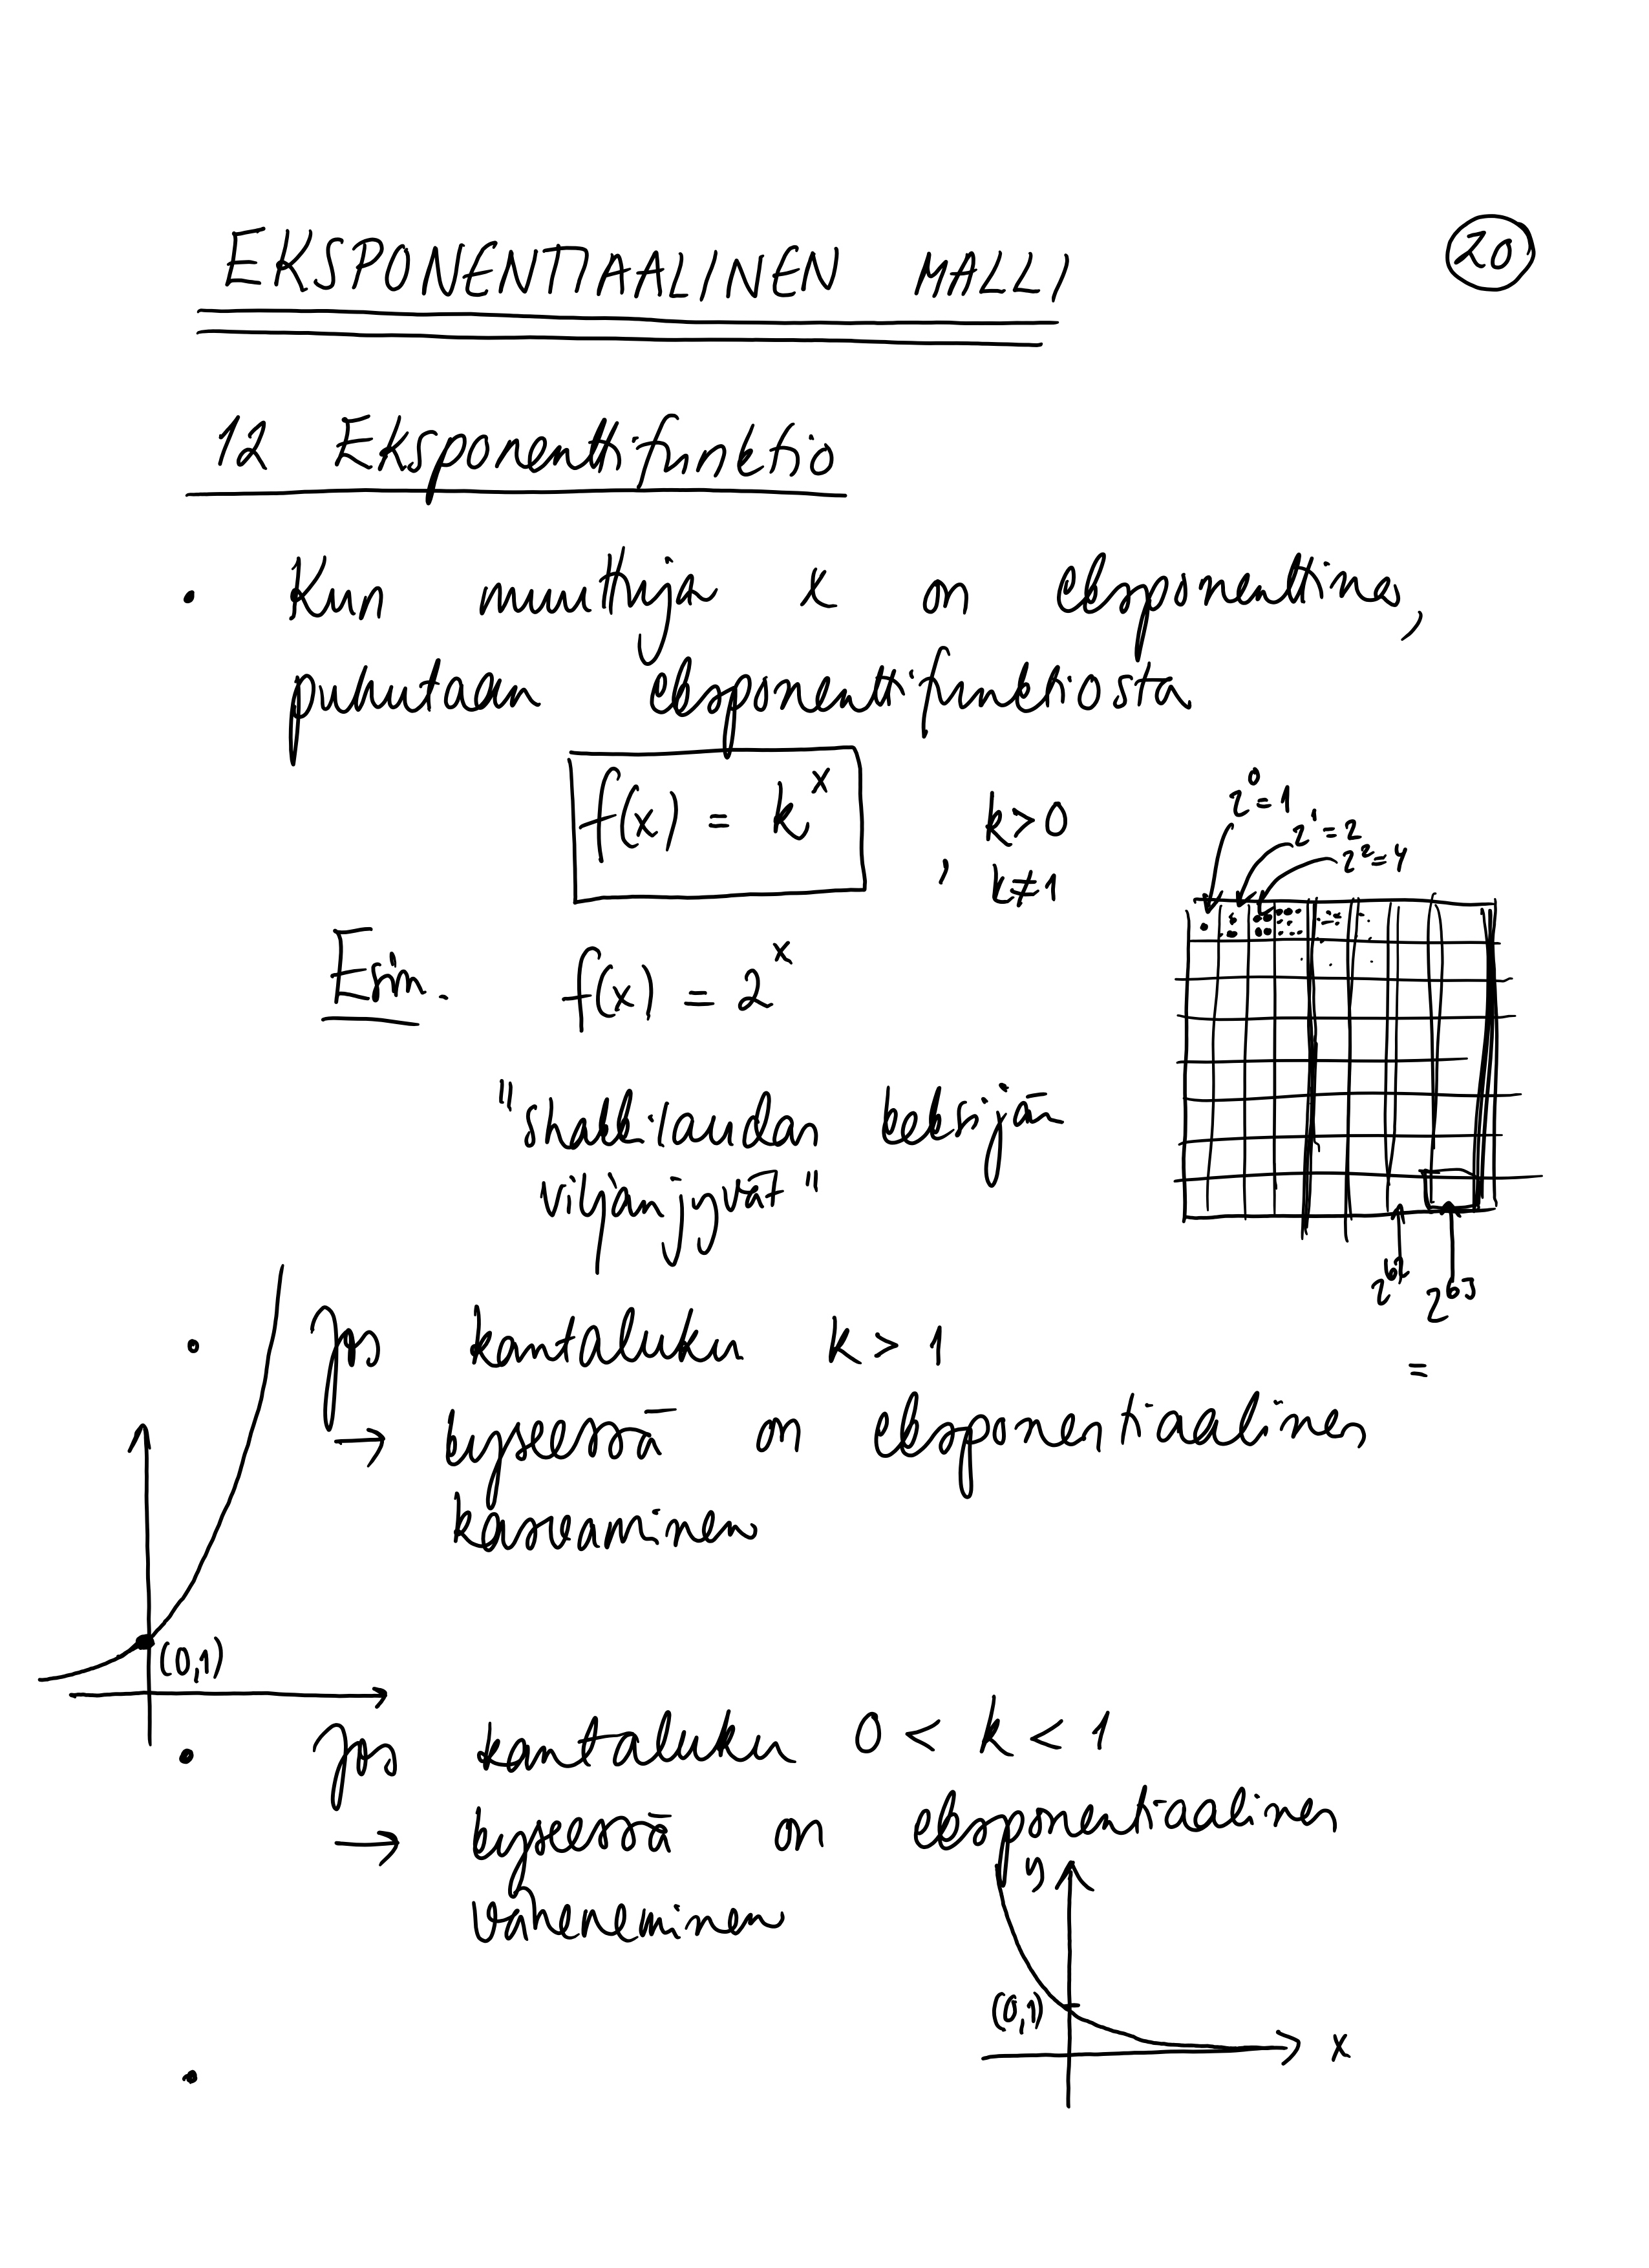 EKSPONENTIAALINEN MALLI
20
12 Eksponenttifunktio
• Kun muuttuja x on eksponenttina,
puhutaan eksponenttifunktiosta
f(x) = k^x , k>0
k≠1
2^0=1
2^1=2
2^2=4
Esim. f(x) = 2^x
"shakkilaudan keksijän
viljan jyvät"
2^62 2^63
• Jos kantaluku k > 1
=
→ kyseessä on eksponentiaalinen
kasvaminen
(0,1)
• Jos kantaluku 0 < k < 1
→ kyseessä on eksponentiaalinen
väheneminen
y
(0,1)
x
•